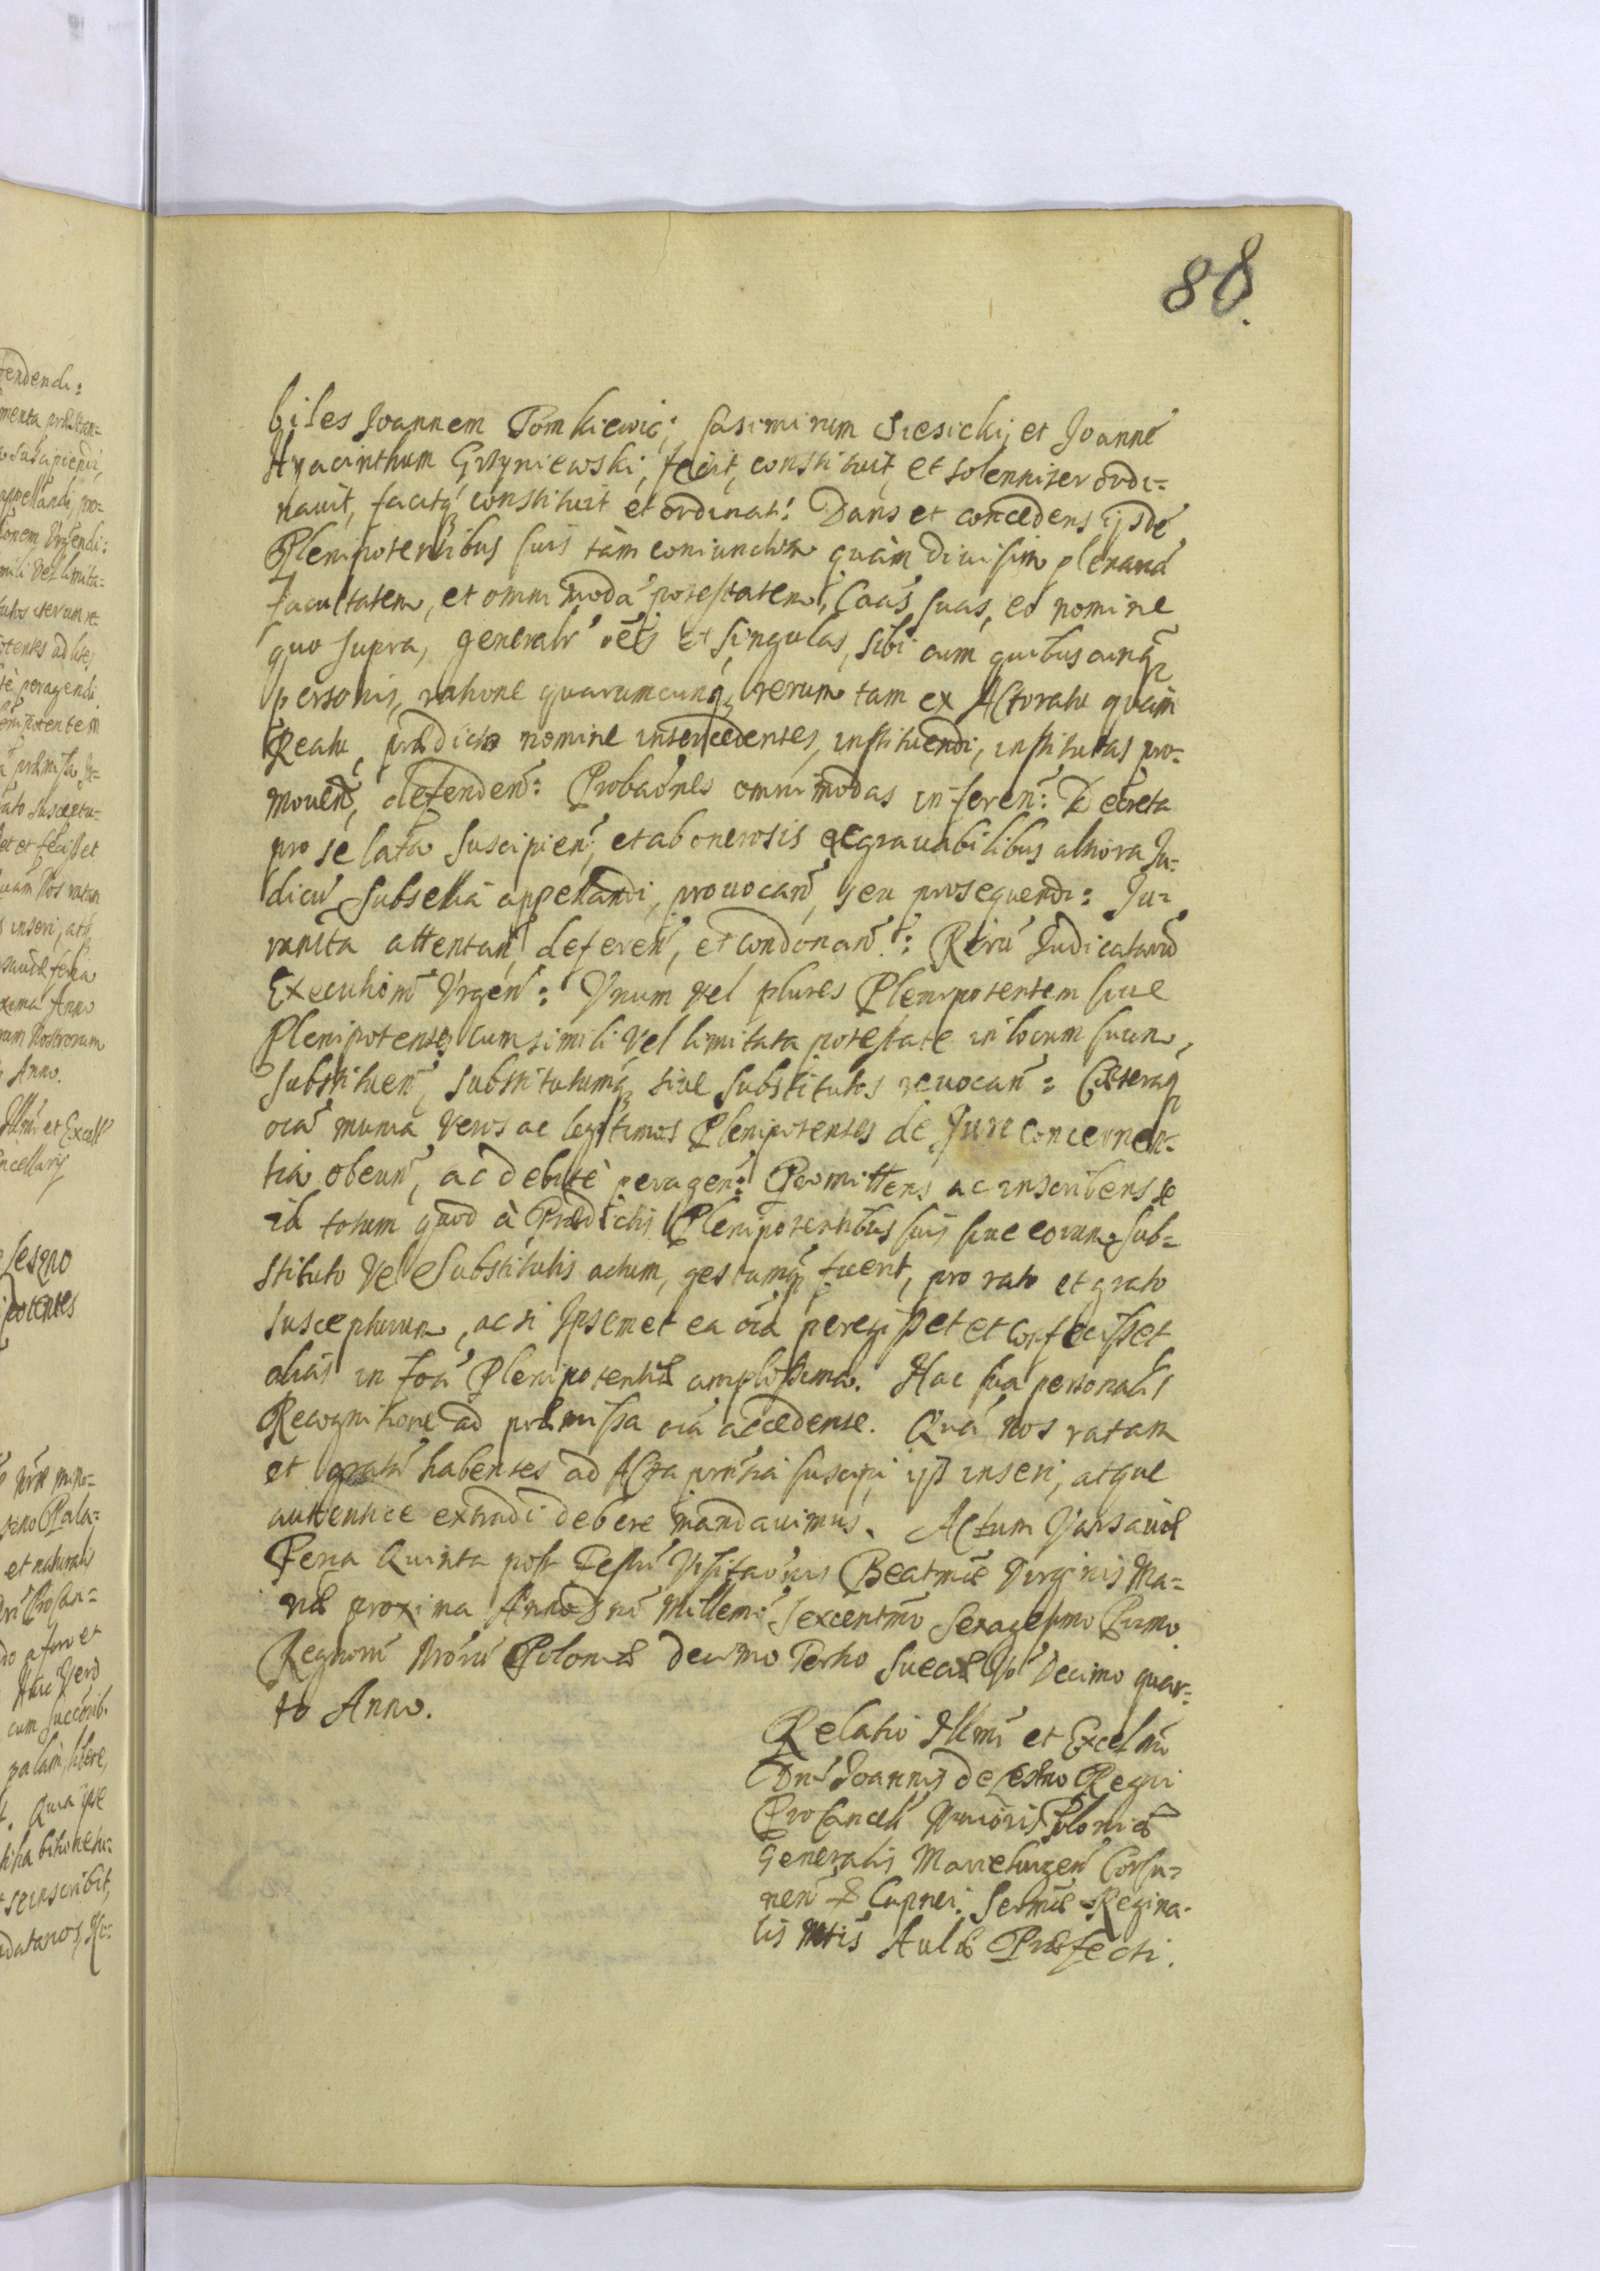 88.
biles Joannem Tomkiewic; Casimirum Siesicki, et Joanné
Hyacinthum Grzyniewski, fecit, constituit, et solenniter ordi=
nauit, facitq́ constituit et ordinat: Dans et concedens ijsdé
Plenipotentibus suis tàm coniunctim quàm diuisim plenariá
facultatem, et omnimodá potestatem, Caás suas, eo nomine
quo supra, generalr oés et singulas, sibi cum quibuscunq
personis, ratione quarumcunq rerum tam ex Actoratu quàm
Reatu, prædicto nomine intercedentes, instituendi, institutas pro=
mouen, defenden: Probaónes omnimodas inferen: Decreta
pro se lata suscipien, et ab onerosis et grauabilibus altiora Ju=
dicú Subsellia appellandi, prouocan, seu prosequendi: Ju=
ramta attentan, deferen, et condonan: Rerú Judicatarú
Executiom Vrgen: Vnum vel plures Plenipotentem siue
Plenipotentes cum simili vel limitata potestate in locum suum,
substituen, substitutumq siue substitutos reuocan: Cæteraq
oia munia veros ac legitimos Plenipotentes de Jure concernen=
tia obeun, ac debitè peragen: Permittens ac inscribens se
id totum quod à Prædictis Plenipotentibus suis siue eorum sub=
stituto vel Substitutis actum, gestumq fuerit, pro rato et grato
suscepturum, ac si Ipsemet ea oia peregisset et confecisset
aliàs in foá Plenipotentiæ amplissima. Hac sua personali
Recognitione ad præmissa oia accedente. Quá nos ratam
et gratá habentes ad Acta prntia suscipi, ijs inseri, atque
autentice extradi debere mandauimus. Actum Varsauiæ
Feria Quinta post Festú Visitaónis Beatmæ Virginis Ma=
riæ proxima Anno Dni Millemo Sexcentmo Sexagesimo Primo
Regnorú Nrorú Poloniæ decimo Tertio Sueciæ Vo Decimo quar=
to Anno.
Relatio Illmi et Excellmi
Dni Joannis de Lesno Regni
ProCancell Maioris Poloniæ
Generalis Marieburgen Corsu=
nen & Capnei. Sermæ Regina=
lis Mtis Aulæ Præfecti.